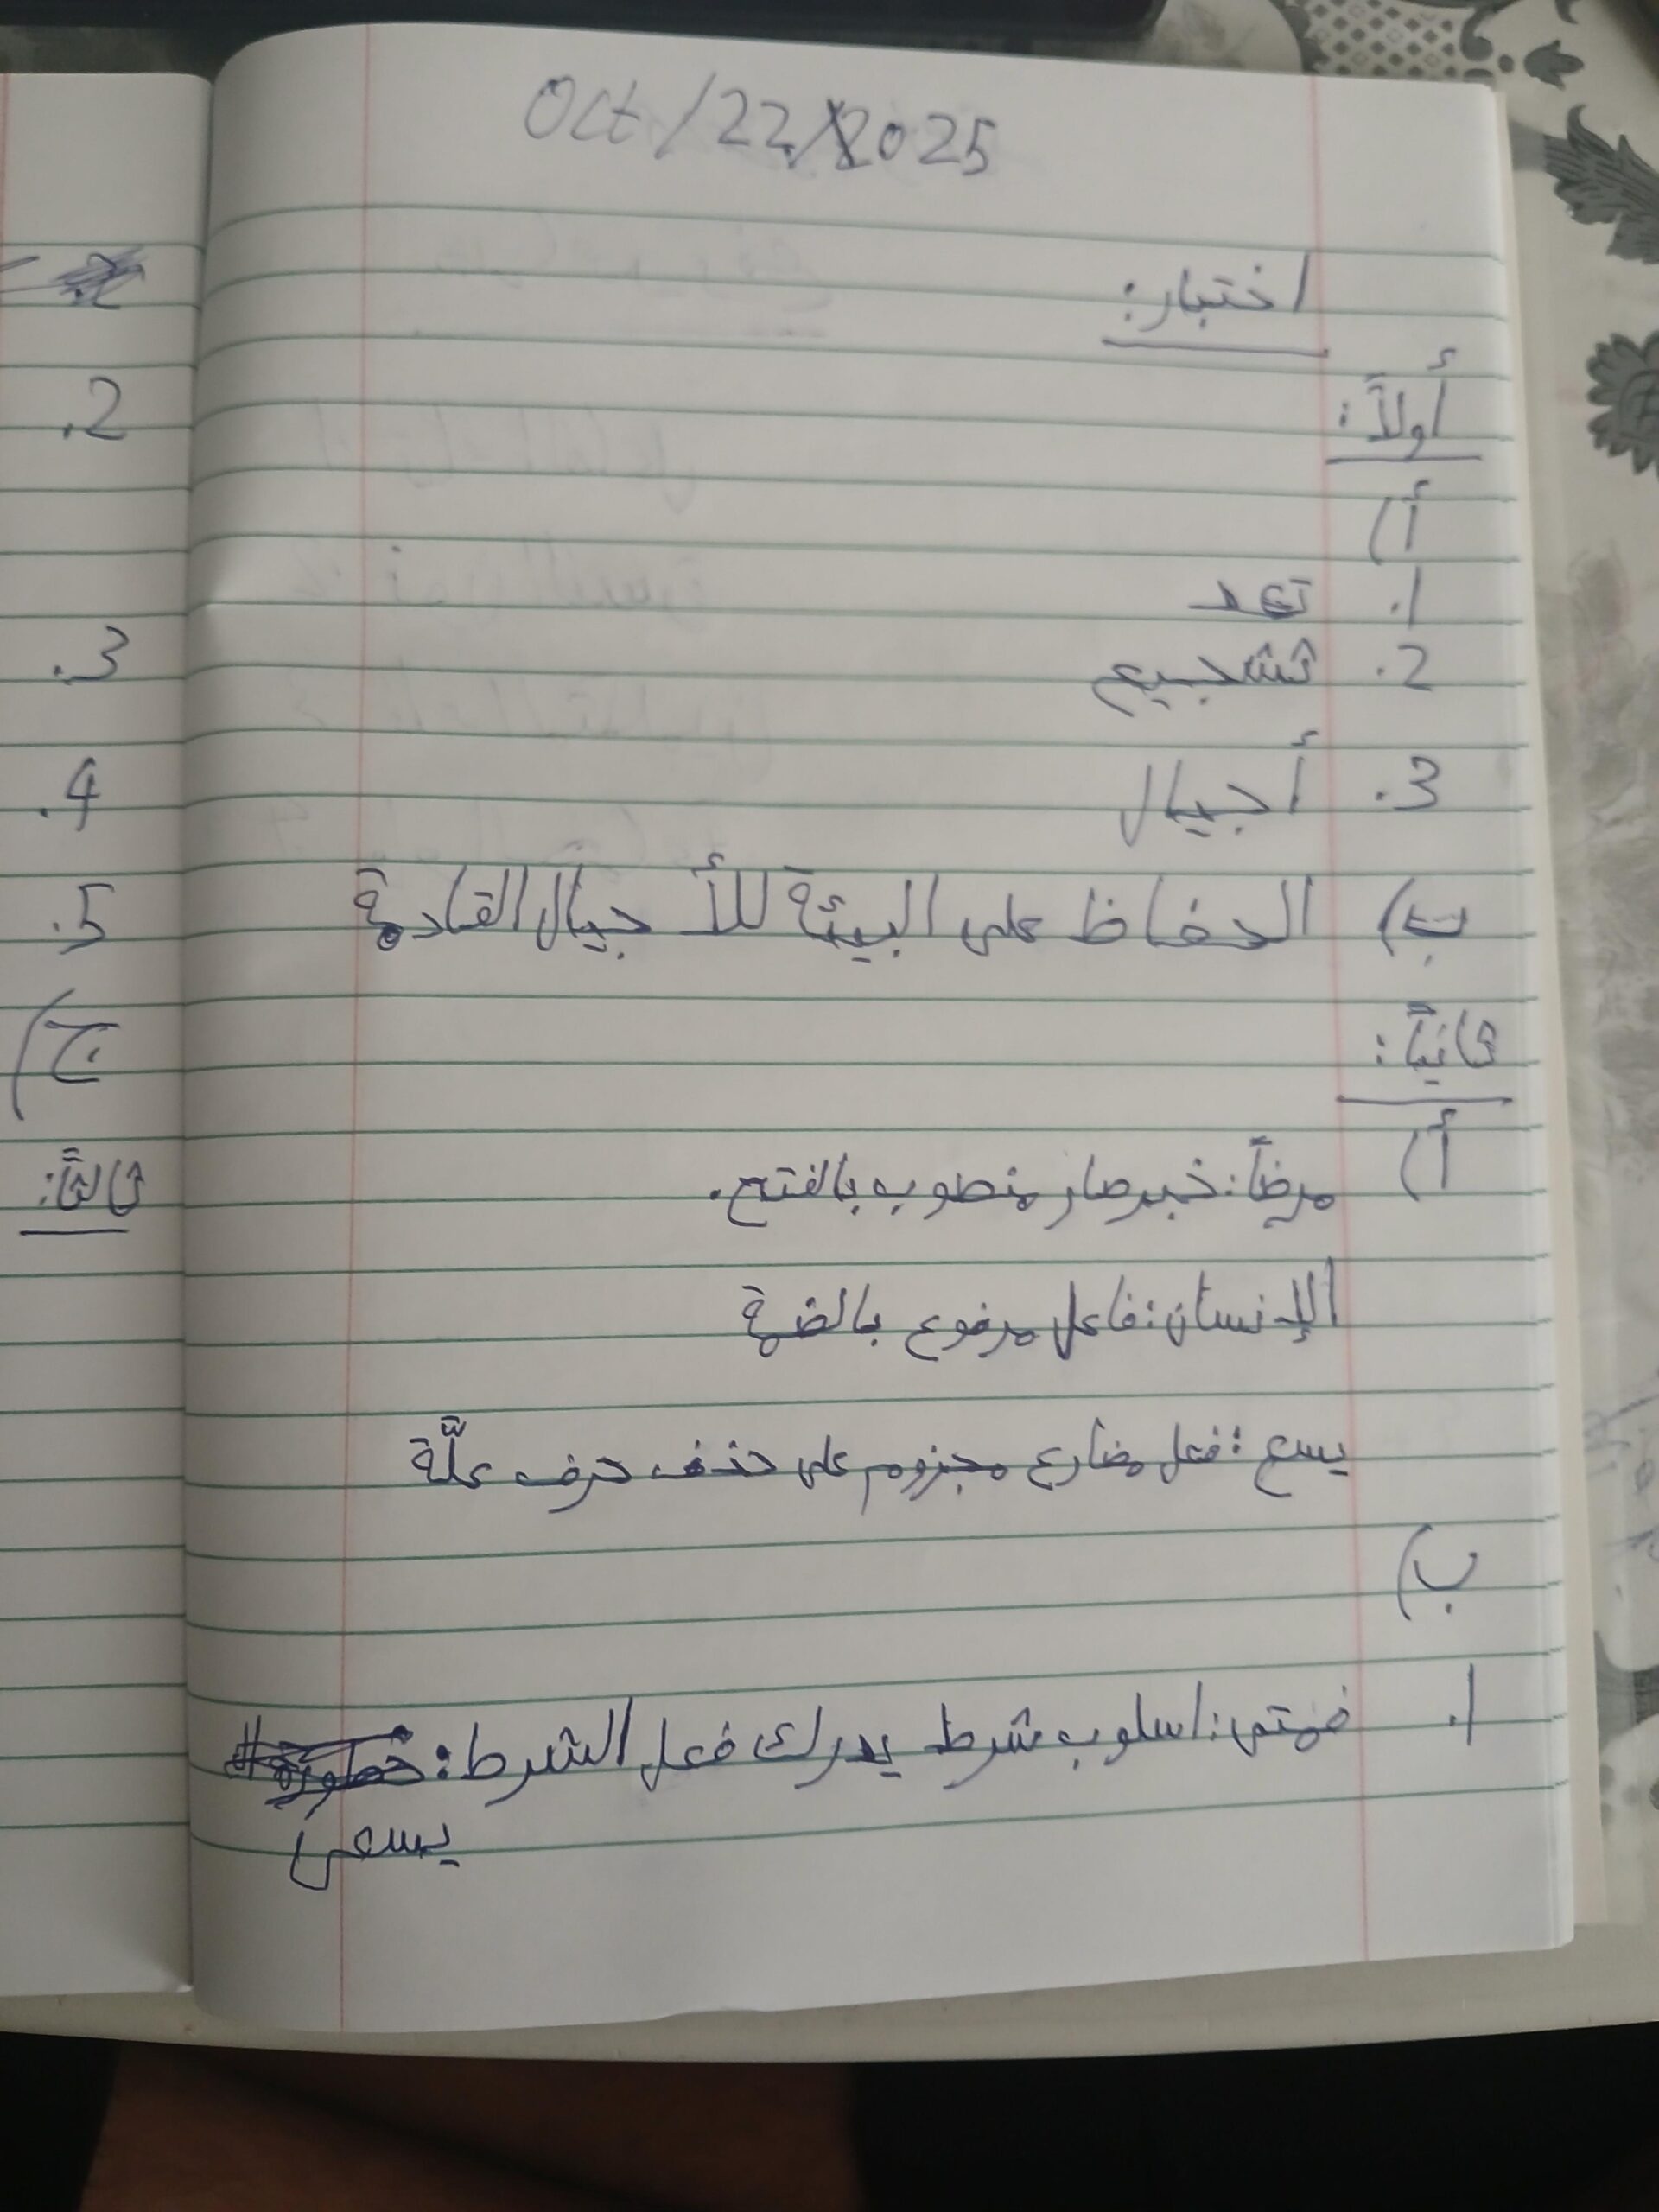 Oct/22/2025
اختبار:
أولاً:
أ)
1. تعد
2. تشجيع
3. أجيال
ب) الحفاظ على البيئة للأجيال القادمة
ثانياً:
أ) مرضاً: خبر صار منصوب بالفتح.
الإنسان: فاعل مرفوع بالضمة
يسع: فعل مضارع مجزوم على حذف حرف علّة
ب)
1. فمتى: اسلوب شرط يدرك فعل الشرط:
يسعى
2.
3.
4.
5.
ج)
ثالثاً: